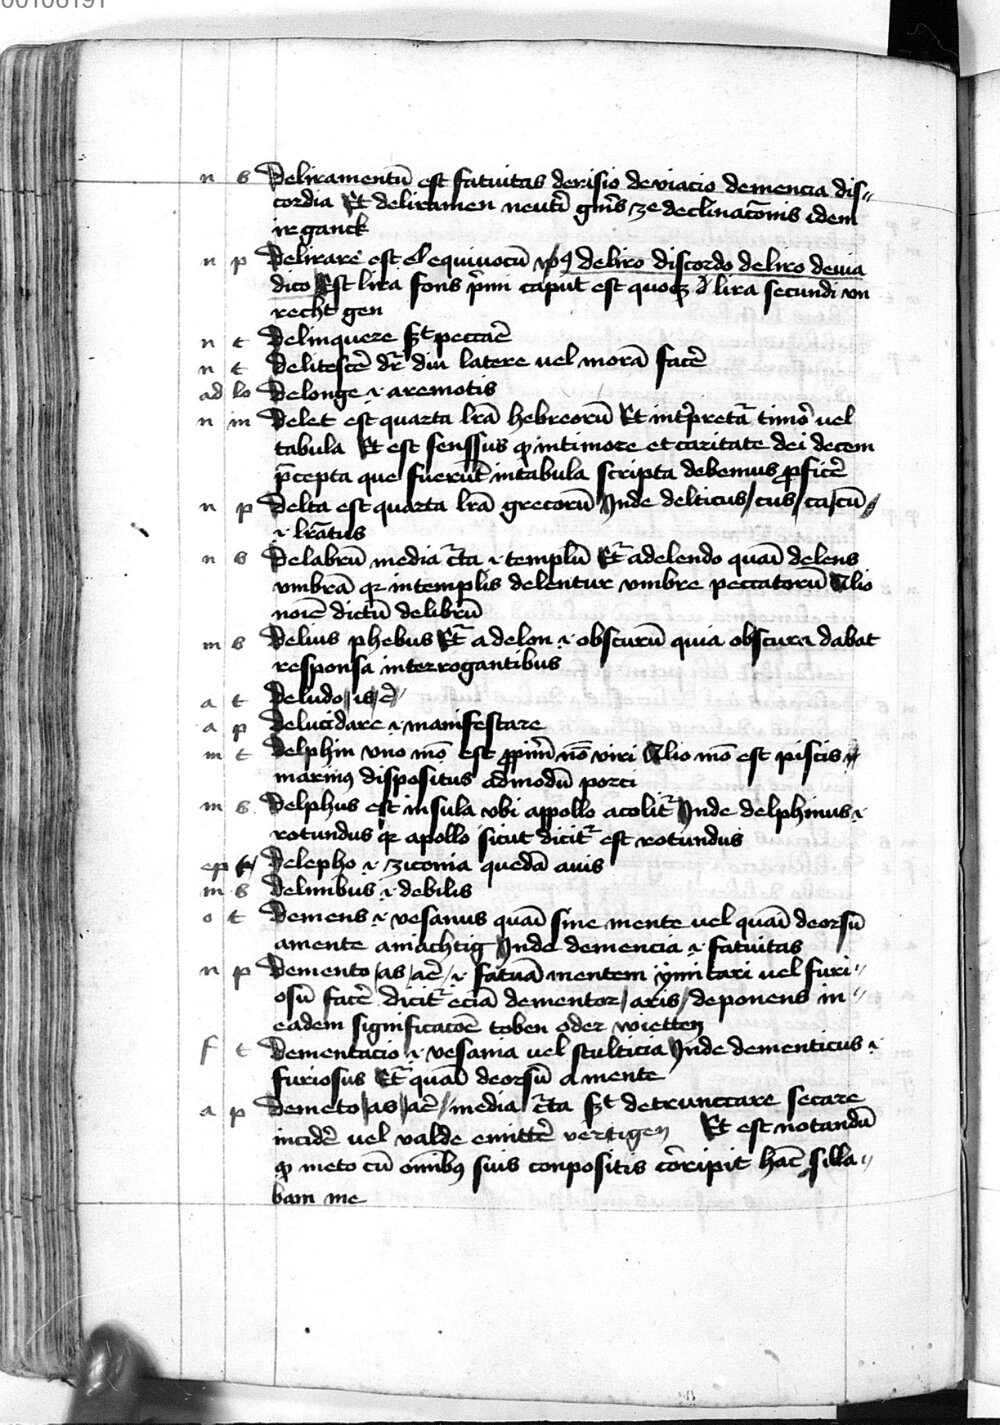 00106191
n s Deliramentū est fatuitas derisio deviacio demencia dis-
cordia Et deliramen neut̄i gn̄is 3e declinac̄onis idem
irganck
n p Delirare est el equivocū vs9 deliro discordo deliro devia
dico Est lira fons p̄mi caput est quoq3 d lira secundi vn
recht gen
n t Delinquere s̄t peccar̄e
n t Delitescer̄e dr̄ diu latere uel morā facer̄e
ad lo Delonge .i. aremotis
n m Delet est quarta lr̄a hebreorū Et int̄pretat̄ timor̄ uel
tabula Et est senssus q intimore et caritate dei decem
p̄cepta que fuerūt intabula scripta debemus p̄ficer̄e
n p Delta est quarta lr̄a grecorū Inde delticus / cus / ca / cū
.i. lr̄atus
n s Delabrū media c̄ta .i. templū Et̄ adelendo quāi delens
vmbrā qr intemplis delentur vmbre peccatorū Alio
noīe dictū delibrū
m s Delius phebus Et̄ a delon .i. obscurū quia obscura dabat
responsa interrogantibus
a t Deludo / is / er̄e
a p Delucidare .i. manifestare
m t Delphin vno mō est pp̄im̄ nō viri Alio mō est piscis
marinus dispositus admodū porci
m s Delphus est insula vbi appollo acolit̄ Inde delphinus .i.
rotundus qr apollo sicut dicit̄ est rotundus
ep Delepho .i. ziconia quedā avis
m s Delimbus .i. debilis
o t Demens .i. vesanus quāi sine mente uel quāi deorsū
amente amachtig Inde demencia .i. fatuitas
n p Demento / as / ar̄e / .i. fatuā mentem ymitari uel furi-
osū facer̄e dicit̄ eciā dementor / aris / deponens in
eadem significac̄oe toben oder wietten
f t Dementacio .i. vesania uel stulticia Inde dementicus .i.
furiosus Et̄ quāi deorsū a mente
a p Demeto / as / ar̄e / media c̄ta s̄t detrunccare secare
incider̄e uel valde emitter̄e vertigen Et est notandū
q meto cū omīb9 suis conpositis cōripit hanc̄ silla-
bam me